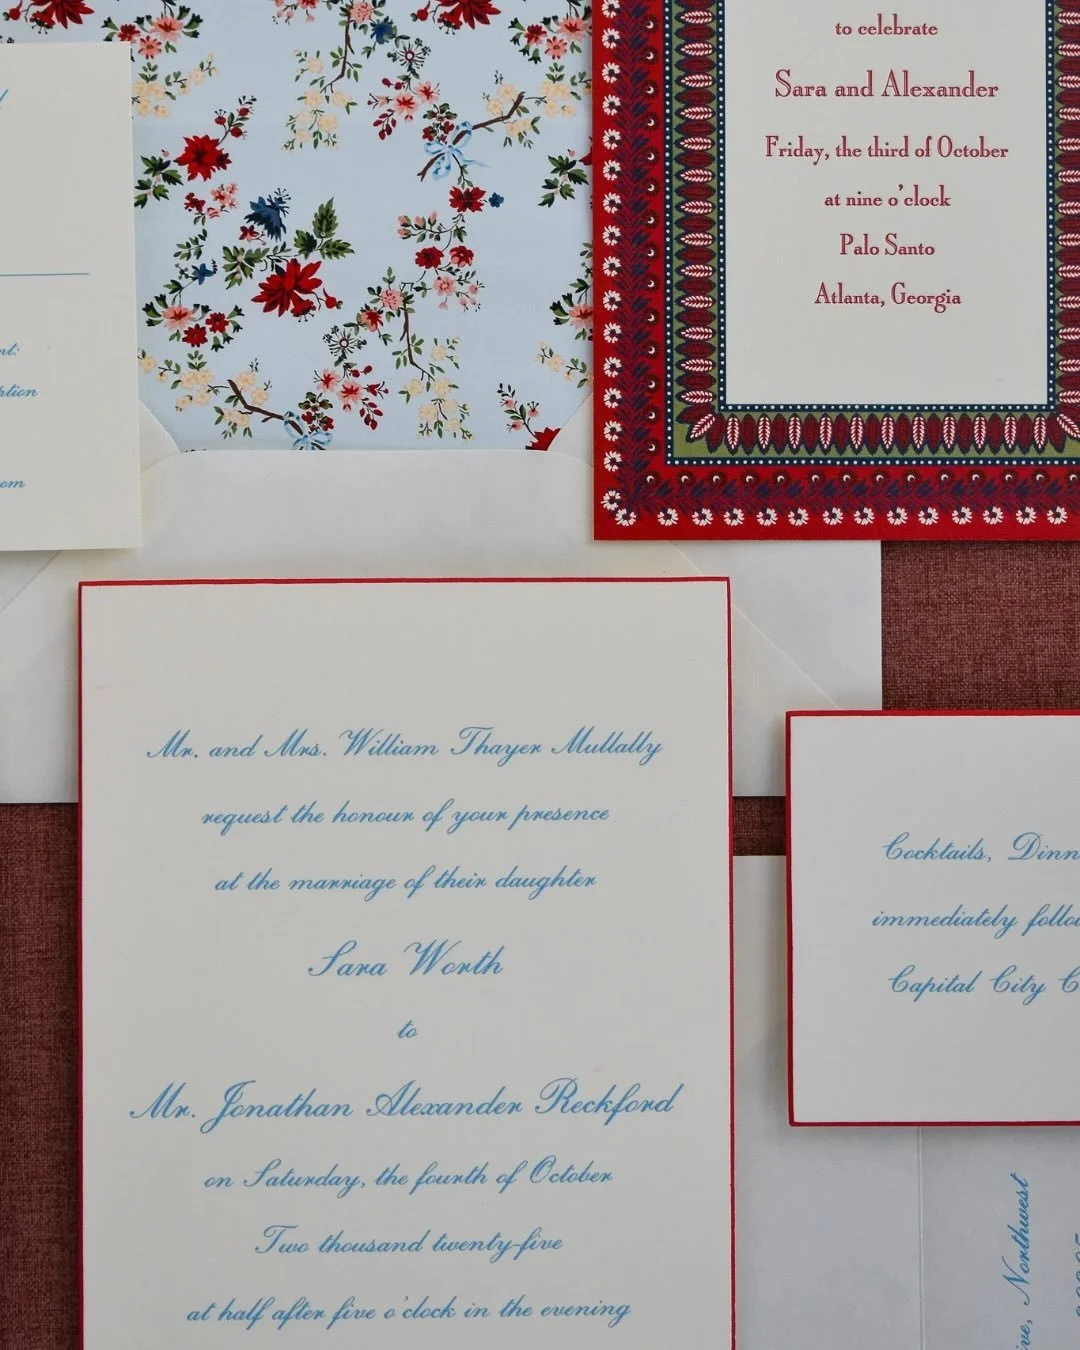 to celebrate
Sara and Alexander
Friday, the third of October
at nine o'clock
Palo Santo
Atlanta, Georgia
Mr. and Mrs. William Thayer Mullally
request the honour of your presence
at the marriage of their daughter
Sara Worth
to
Mr. Jonathan Alexander Reckford
on Saturday, the fourth of October
Two thousand twenty-five
at half after five o'clock in the evening
Cocktails,
immediately
Capital City
Northwest